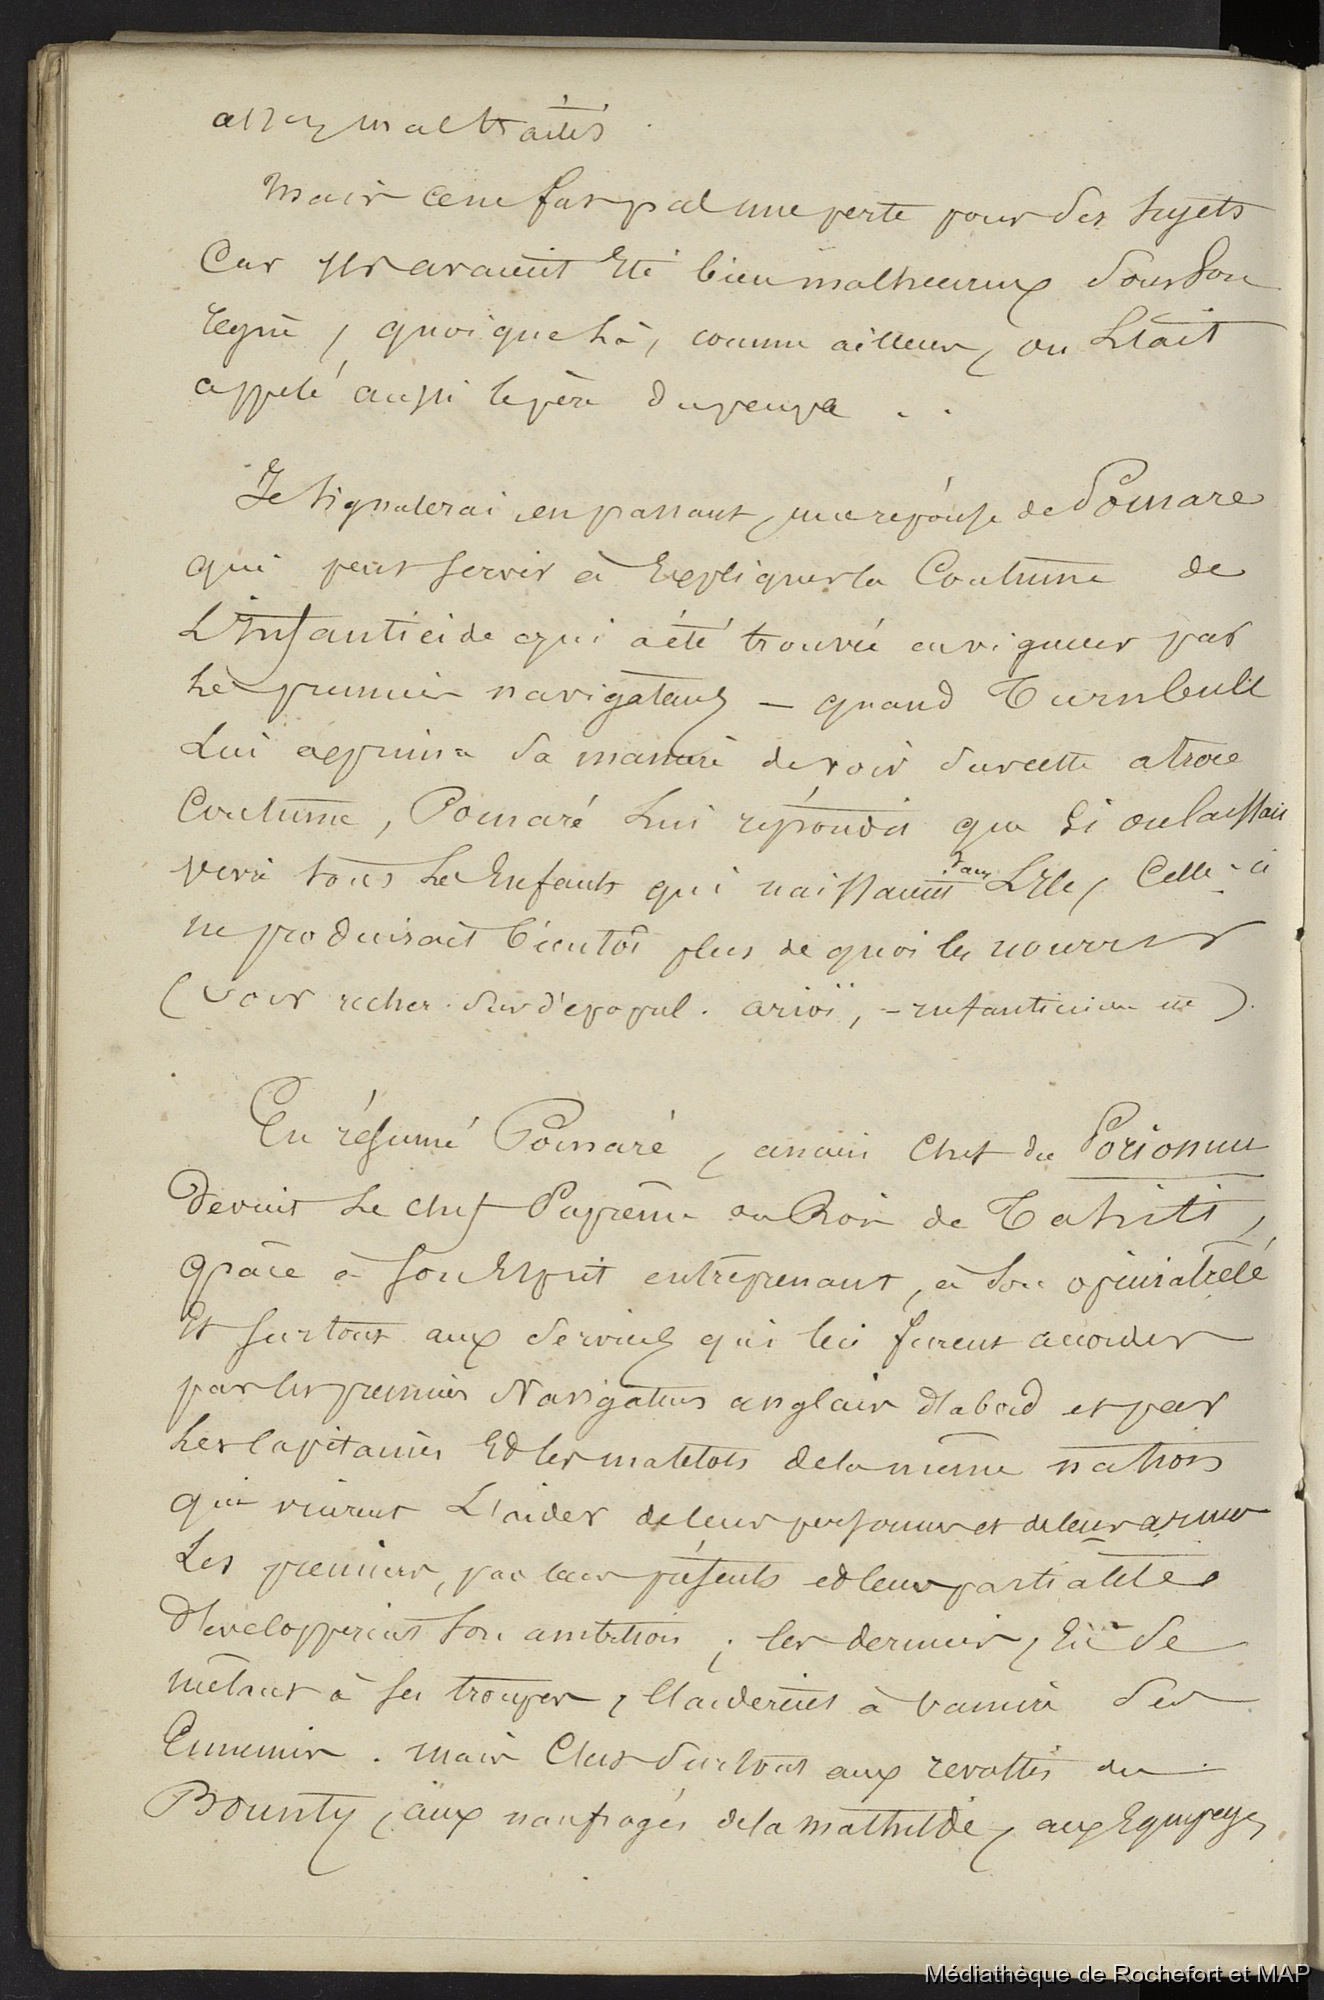 assez maltraités.
Mais ce ne fut pas une perte pour ses sujets
Car ils avaient été bien malheureux sous son
règne, quoique là, comme ailleurs, on l'était
appelé aussi le père du peuple . .
Je signalerai en passant, une réponse de Pomare
qui peut servir à expliquer la Coutume de
L'infanticide qui a été trouvée en vigueur par
les premiers navigateurs — quand Turnbull
Lui exprima sa manière de voir sur cette atroce
Coutume, Pomaré lui répondit que si on laissait
vivre tous les Enfants qui naissaient dans L'Ile, Celle-ci
ne produirait bientôt plus de quoi les nourrir
(voir recher. sur dépopul. arioï, - infanticide etc).
En résumé Pomaré, ancien Chef du Porionuu
Devint le chef Suprême ou Roi de Tahiti,
grâce à son Esprit entreprenant, à son opiniatreté
Et surtout aux services qui lui furent accordés
par les premiers Navigateurs anglais d'abord et par
Les Capitaines Et les matelots de la même nation
qui vinrent L'aider de leur personne et de leurs armes
Les premiers, par leurs présents et leur partialité
Développèrent son ambition ; les derniers, En se
mêlant à ses troupes, l'aidèrent à vaincre ses
Ennemis. mais C'est surtout aux révoltés du
Bounty, aux naufragés de la Mathilde, aux Equipages
Médiathèque de Rochefort et MAP